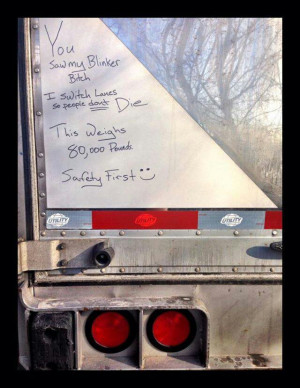 You
Saw my Blinker
Bitch
I Switch Lanes
so people dont Die
This Weighs
80,000 Pounds
Safety First
UTILITY
UTILITY
UTILITY